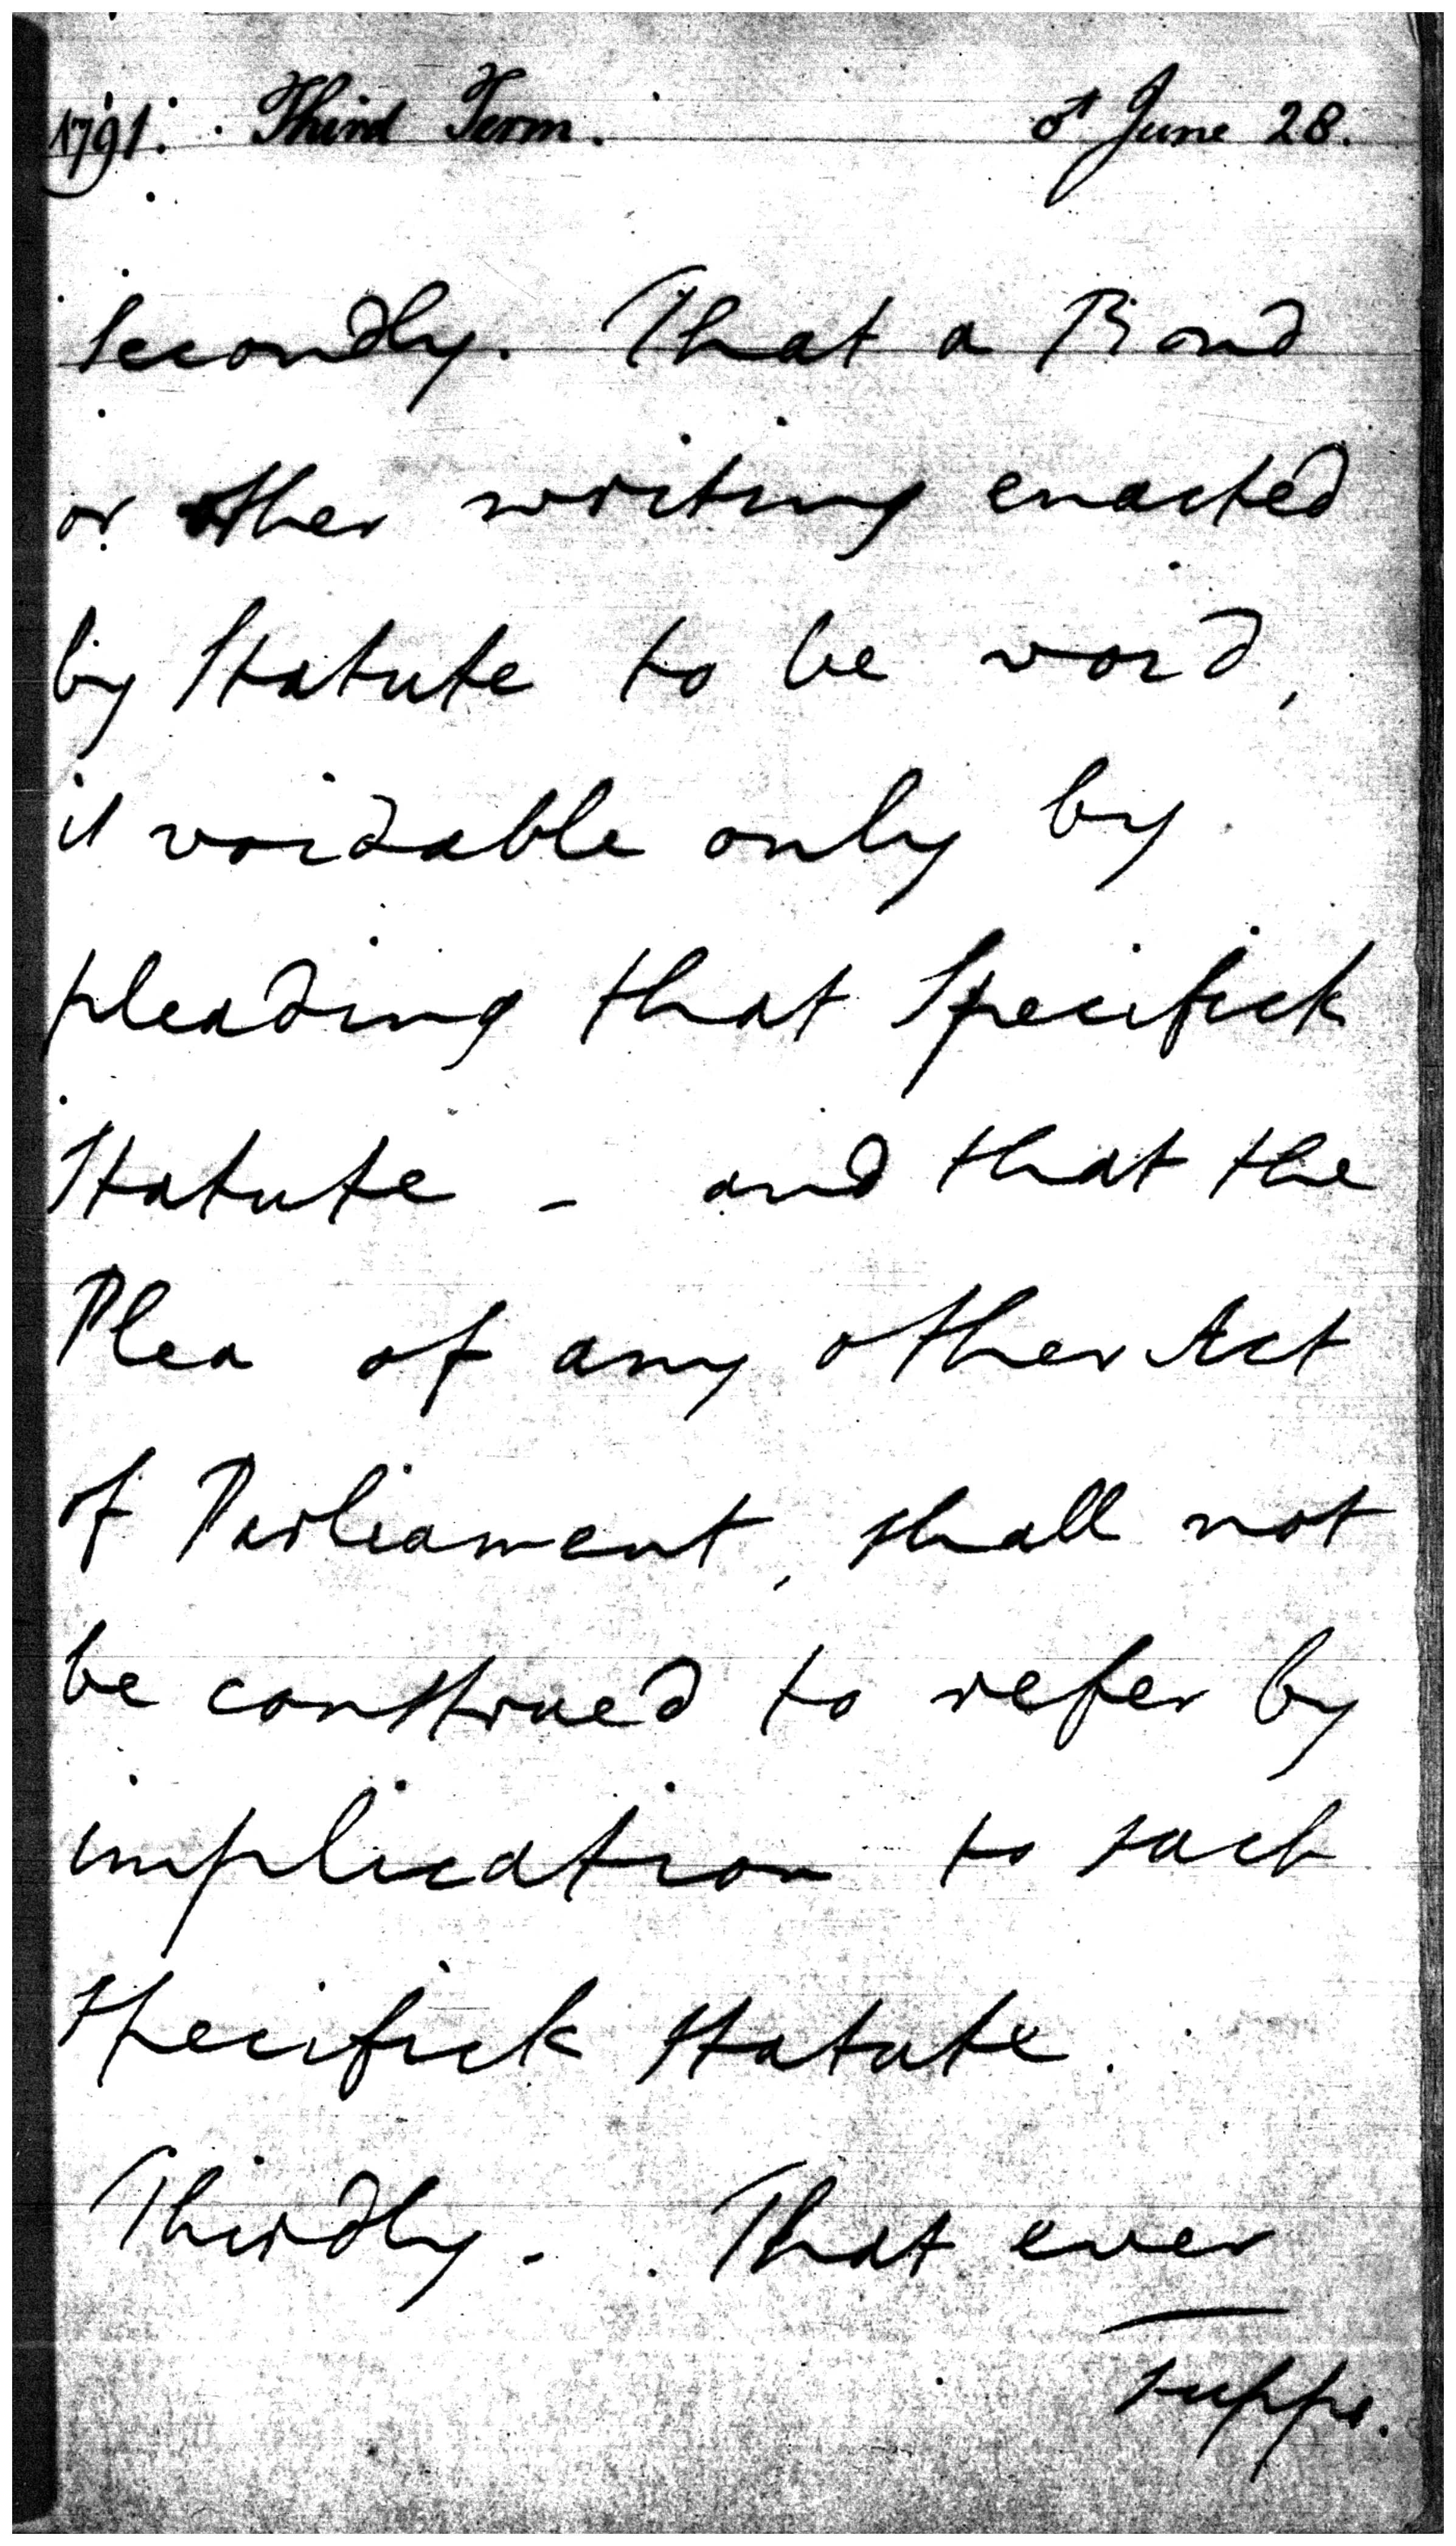 1791. Third Term. June 28.
Secondly. That a Bond
or other writing enacted
by Statute to be void,
is voidable only by
pleading that Specifick
Statute - and that the
Plea of any other Act
of Parliament, shall not
be construed to refer by
implication to such
specifick statute.
Thirdly. That even
suppo.